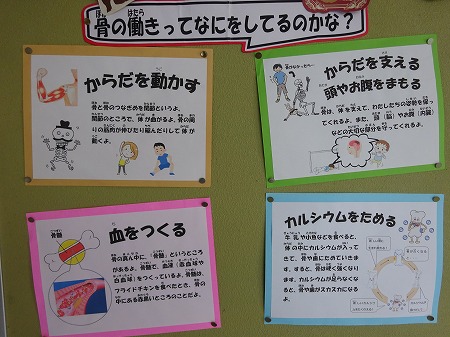 骨の働きってなにをしてるのかな？
からだを動かす
骨と骨のつなぎめを関節というよ。
関節のところで、体が曲がるよ。骨の周
りの筋肉が伸びたり縮んだりして体が
動くよ。
からだを支える
頭やお腹をまもる
骨は、体を支えて、わたしたちの姿勢を保っ
てくれるよ。また、頭（脳）やお腹（内臓）
などの大切な部分を守ってくれるよ。
血をつくる
骨髄
骨の真ん中に、「骨髄」というところ
があるよ。骨髄で、血液（赤血球や
白血球）をつくっているよ。骨髄は、
フライドチキンを食べたとき、骨の
中にある赤黒いところのことだよ。
カルシウムをためる
牛乳や小魚などを食べると、
体の中にカルシウムが入って
きて、骨や歯にためていき
ます。すると、骨は硬く強くなり
ます。カルシウムが足らなくな
ると、骨や歯がスカスカになる
よ。